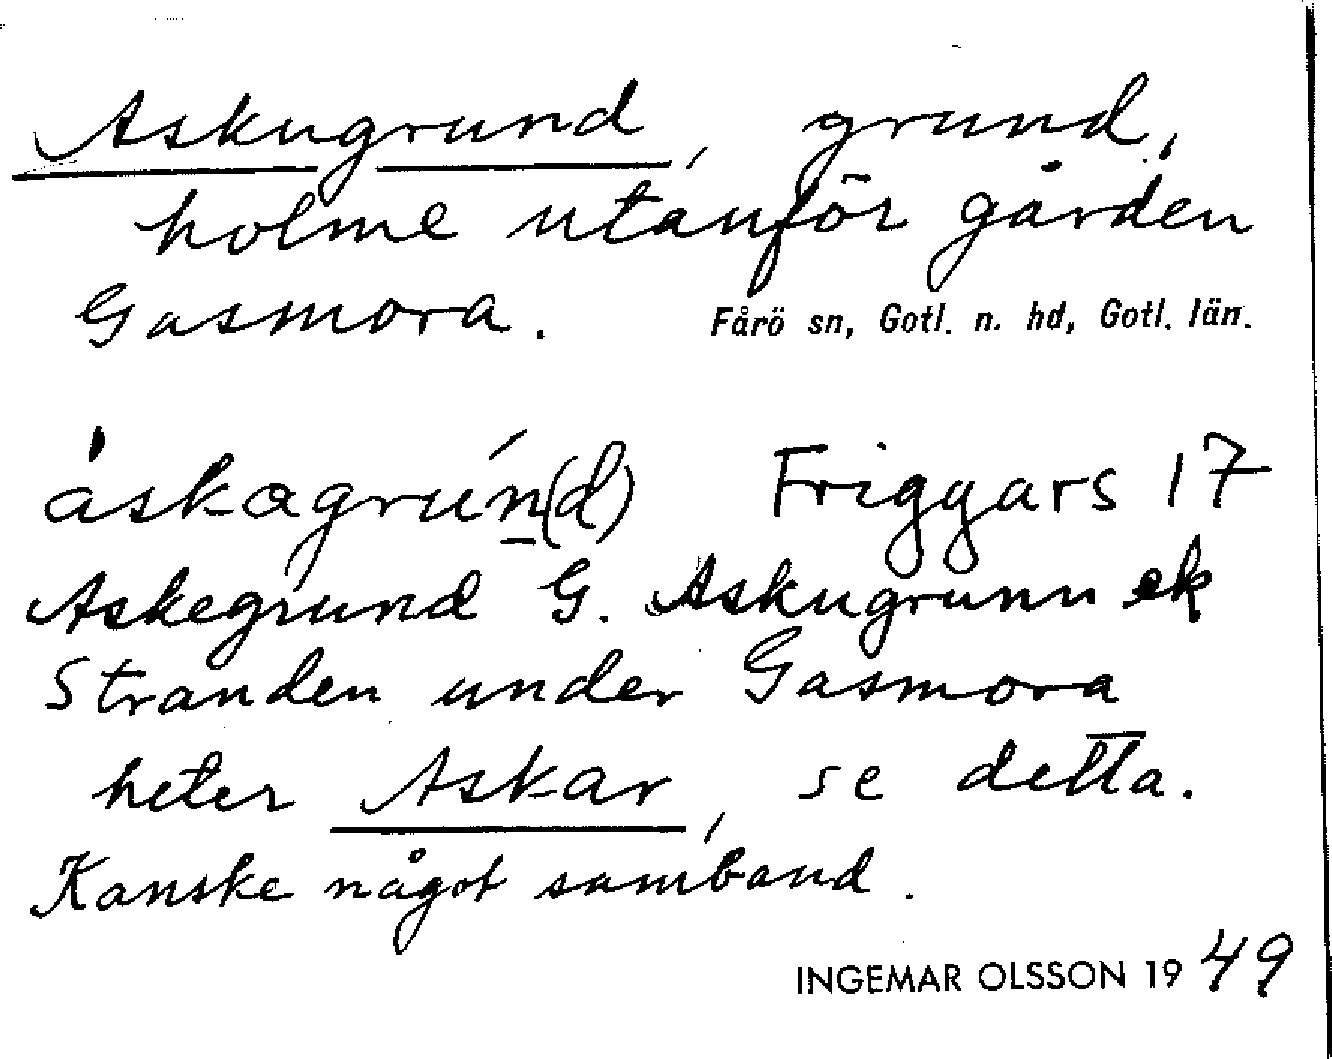 Askugrund, grund,
holme utanför gården
Gasmora. Fårö sn, Gotl. n. hd, Gotl. län.
áskagrún(d) Friggars 17
Askegrund G. Askugrunn ek
Stranden under Gasmora
heter Askar, se detta.
Kanske något samband.
INGEMAR OLSSON 1949